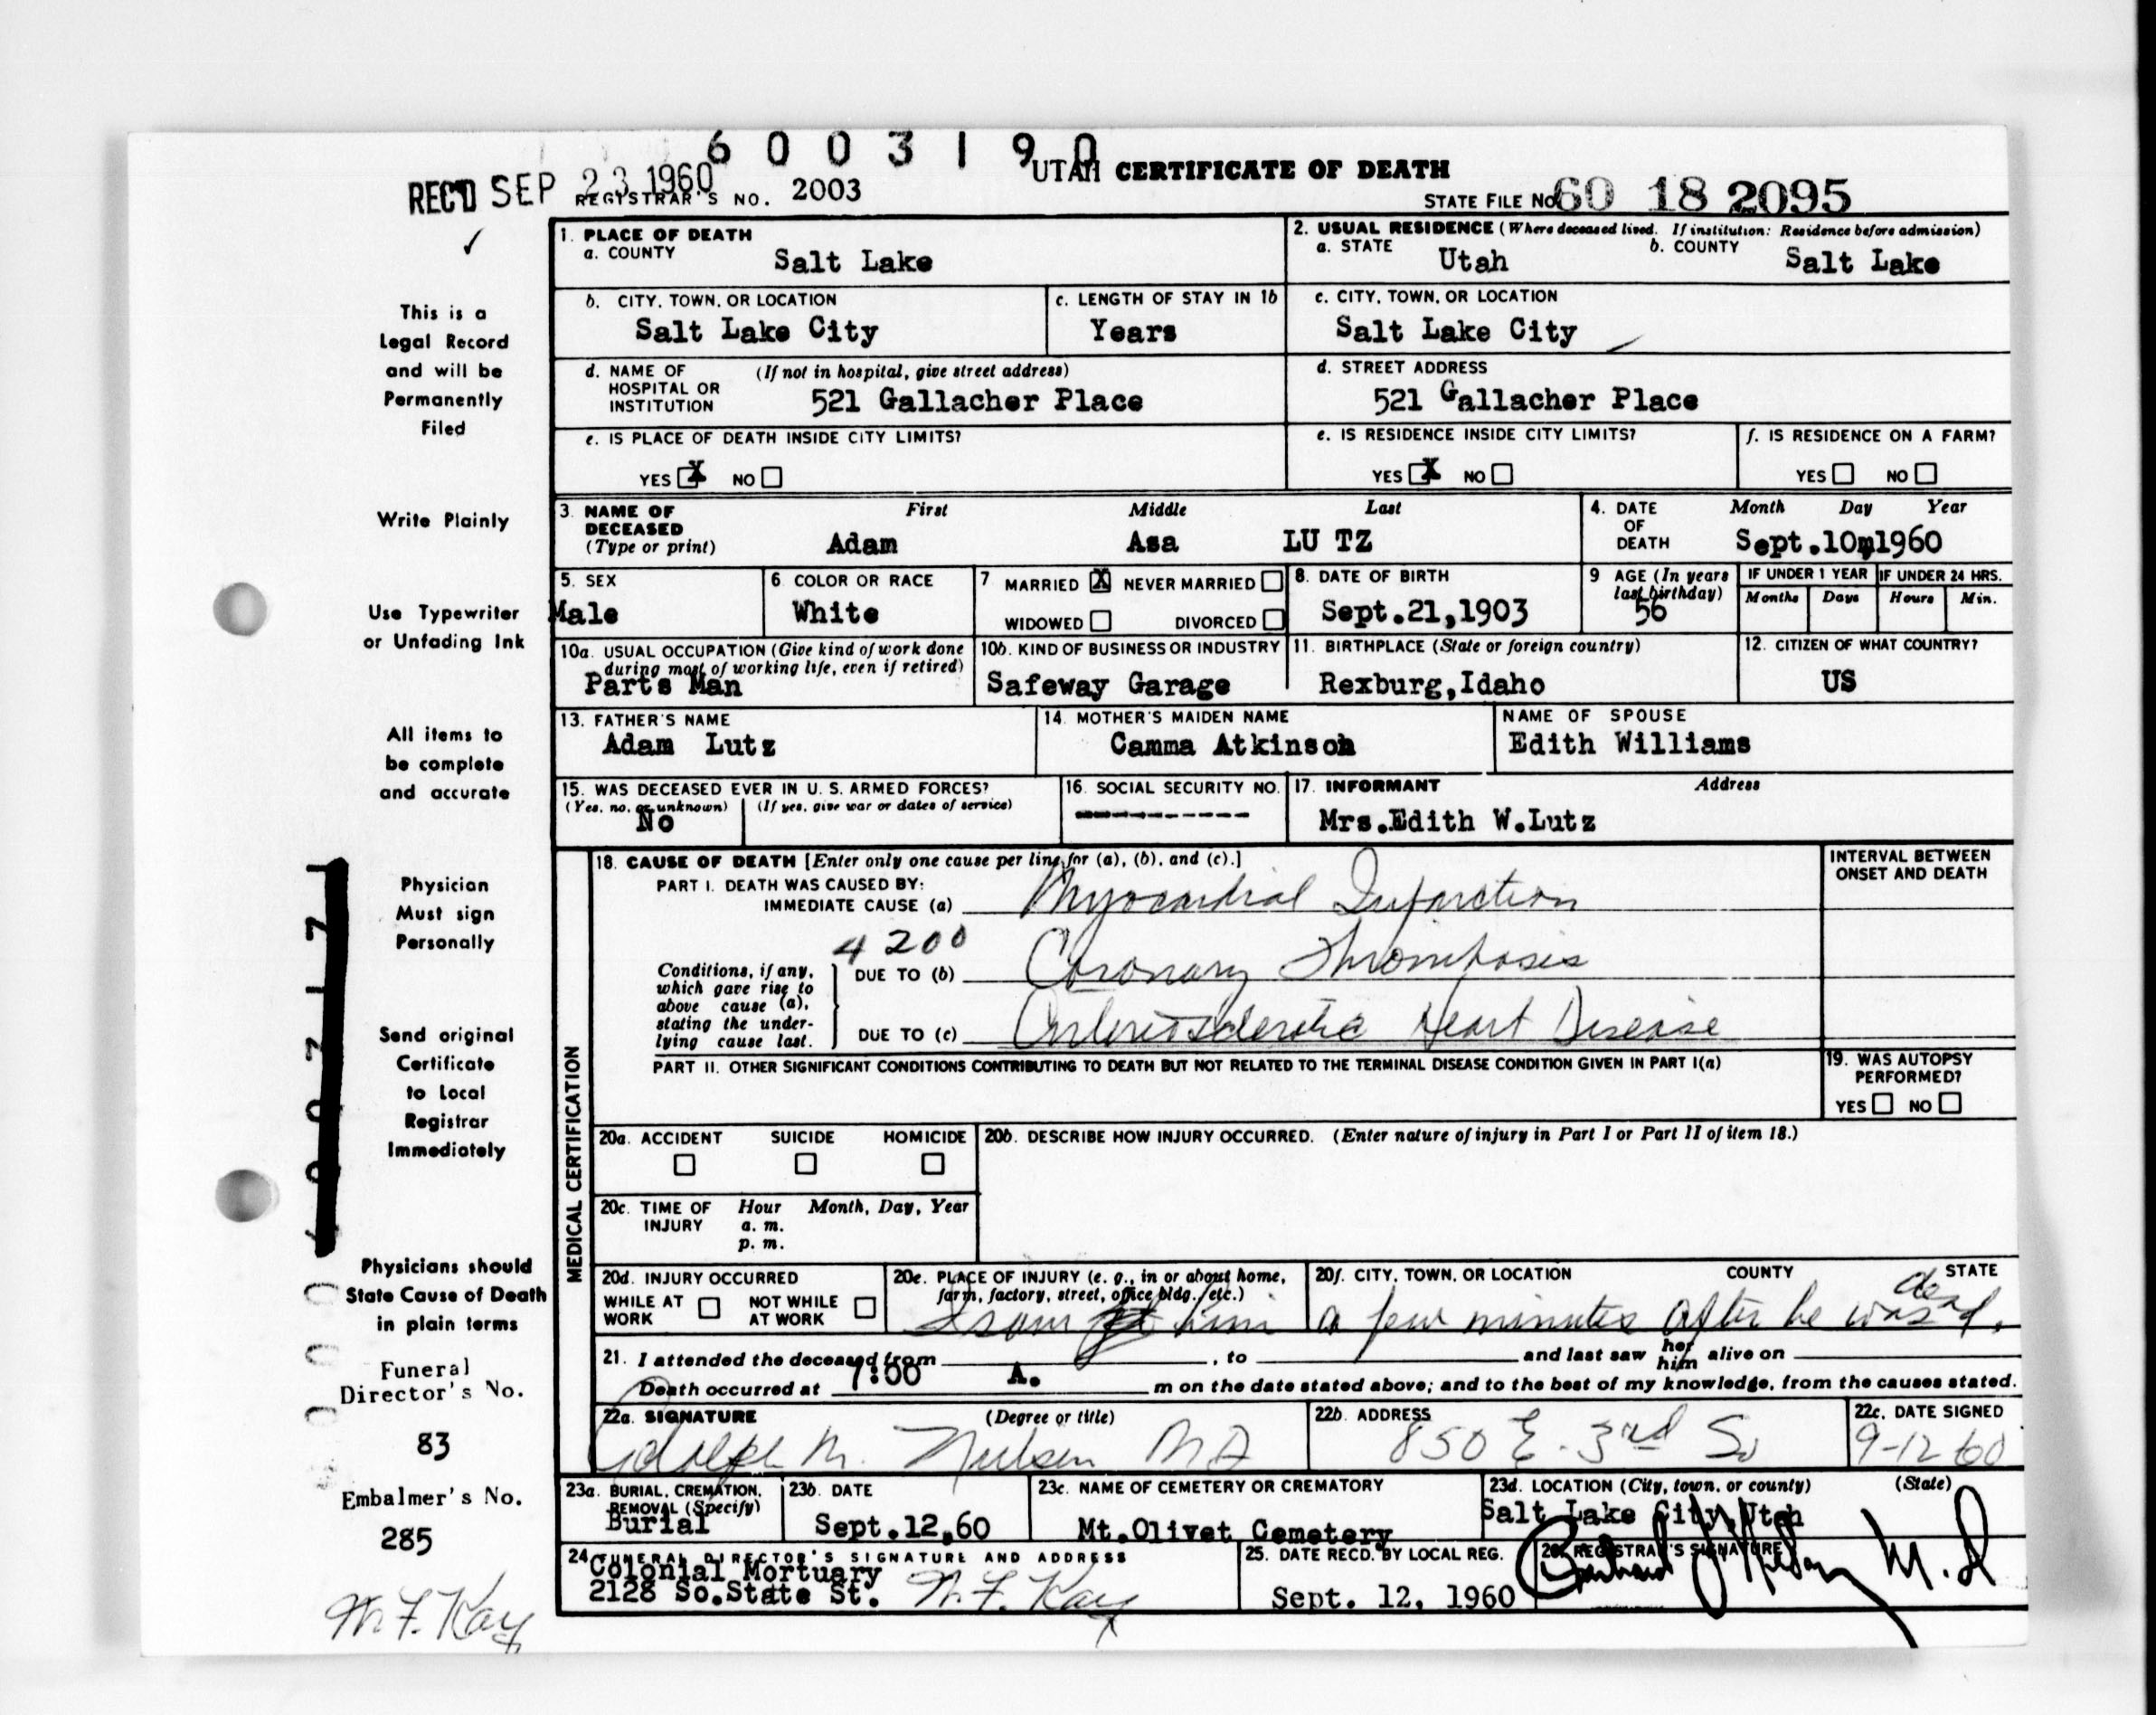 6003190
REC'D SEP 23 1960
UTAH CERTIFICATE OF DEATH
REGISTRAR'S NO. 2003
STATE FILE NO. 60 18 2095
✓
This is a
Legal Record
and will be
Permanently
Filed
Write Plainly
Use Typewriter
or Unfading Ink
All items to
be complete
and accurate
Physician
Must sign
Personally
Send original
Certificate
to Local
Registrar
Immediately
Physicians should
State Cause of Death
in plain terms
Funeral
Director's No.
83
Embalmer's No.
285
W.F. Kay
1. PLACE OF DEATH
a. COUNTY
Salt Lake
2. USUAL RESIDENCE (Where deceased lived. If institution: Residence before admission)
a. STATE Utah b. COUNTY Salt Lake
b. CITY, TOWN, OR LOCATION
Salt Lake City
c. LENGTH OF STAY IN 1b
Years
c. CITY, TOWN, OR LOCATION
Salt Lake City
d. NAME OF (If not in hospital, give street address)
HOSPITAL OR
INSTITUTION 521 Gallacher Place
d. STREET ADDRESS
521 Gallacher Place
e. IS PLACE OF DEATH INSIDE CITY LIMITS?
YES X NO
e. IS RESIDENCE INSIDE CITY LIMITS?
YES X NO
f. IS RESIDENCE ON A FARM?
YES NO
3. NAME OF First Middle Last
DECEASED
(Type or print) Adam Asa LU TZ
4. DATE Month Day Year
OF
DEATH Sept.10,1960
5. SEX
Male
6 COLOR OR RACE
White
7 MARRIED X NEVER MARRIED
WIDOWED DIVORCED
8. DATE OF BIRTH
Sept.21,1903
9 AGE (In years
last birthday)
56
IF UNDER 1 YEAR IF UNDER 24 HRS.
Months Days Hours Min.
10a. USUAL OCCUPATION (Give kind of work done
during most of working life, even if retired)
Parts Man
10b. KIND OF BUSINESS OR INDUSTRY
Safeway Garage
11. BIRTHPLACE (State or foreign country)
Rexburg,Idaho
12. CITIZEN OF WHAT COUNTRY?
US
13. FATHER'S NAME
Adam Lutz
14. MOTHER'S MAIDEN NAME
Camma Atkinson
NAME OF SPOUSE
Edith Williams
15. WAS DECEASED EVER IN U. S. ARMED FORCES?
(Yes, no, or unknown) (If yes, give war or dates of service)
No
16. SOCIAL SECURITY NO.
-----------
17. INFORMANT Address
Mrs.Edith W.Lutz
MEDICAL CERTIFICATION
18. CAUSE OF DEATH [Enter only one cause per line for (a), (b), and (c).]
INTERVAL BETWEEN
ONSET AND DEATH
PART I. DEATH WAS CAUSED BY:
IMMEDIATE CAUSE (a) Myocardial Infarction
4200
Conditions, if any,
which gave rise to
above cause (a),
stating the under-
lying cause last.
DUE TO (b) Coronary Thrombosis
DUE TO (c) Arteriosclerotic Heart Disease
PART II. OTHER SIGNIFICANT CONDITIONS CONTRIBUTING TO DEATH BUT NOT RELATED TO THE TERMINAL DISEASE CONDITION GIVEN IN PART I(a)
19. WAS AUTOPSY
PERFORMED?
YES NO
20a. ACCIDENT SUICIDE HOMICIDE
20b. DESCRIBE HOW INJURY OCCURRED. (Enter nature of injury in Part I or Part II of item 18.)
20c. TIME OF Hour Month, Day, Year
INJURY a. m.
p. m.
20d. INJURY OCCURRED
WHILE AT WORK NOT WHILE AT WORK
20e. PLACE OF INJURY (e. g., in or about home,
farm, factory, street, office bldg., etc.)
20f. CITY, TOWN, OR LOCATION COUNTY STATE
I saw him a few minutes after he was dead.
21. I attended the deceased from , to and last saw her him alive on
Death occurred at 7:00 A. m on the date stated above; and to the best of my knowledge, from the causes stated.
22a. SIGNATURE (Degree or title)
Adolph M. Nielsen MD
22b. ADDRESS
850 E. 3rd So
22c. DATE SIGNED
9-12 60
23a. BURIAL, CREMATION,
REMOVAL (Specify)
Burial
23b. DATE
Sept.12,60
23c. NAME OF CEMETERY OR CREMATORY
Mt.Olivet Cemetery
23d. LOCATION (City, town, or county) (State)
Salt Lake City,Utah
24 FUNERAL DIRECTOR'S SIGNATURE AND ADDRESS
Colonial Mortuary
2128 So.State St. W.F. Kay
25. DATE RECD. BY LOCAL REG.
Sept. 12, 1960
26. REGISTRAR'S SIGNATURE
M.D